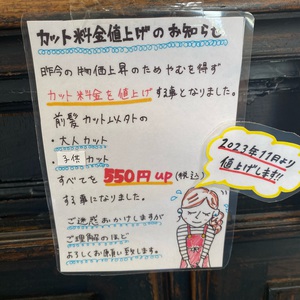 カット料金値上げのお知らせ
昨今の物価上昇のためやむを得ず
カット料金を値上げする事となりました。
前髪カット以外の
・大人カット
・子供カット
すべてを550円up(税込)
する事になりました。
ご迷惑おかけしますが
ご理解のほど
よろしくお願い致します。
2023年11月より
値上げします!!